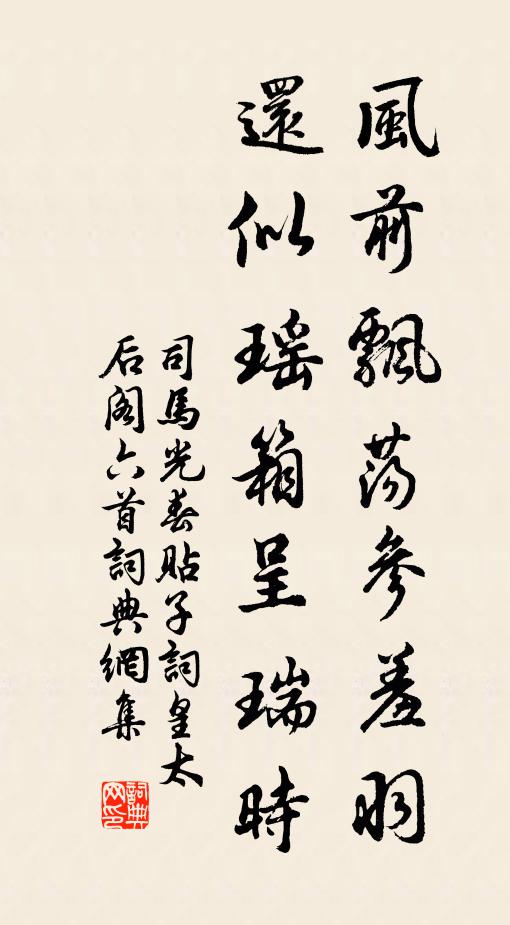 風前飄蕩參差羽
還似瑶箱呈瑞時
司馬光春貼子詞皇太
后閣六首詞典網集
詞典网印